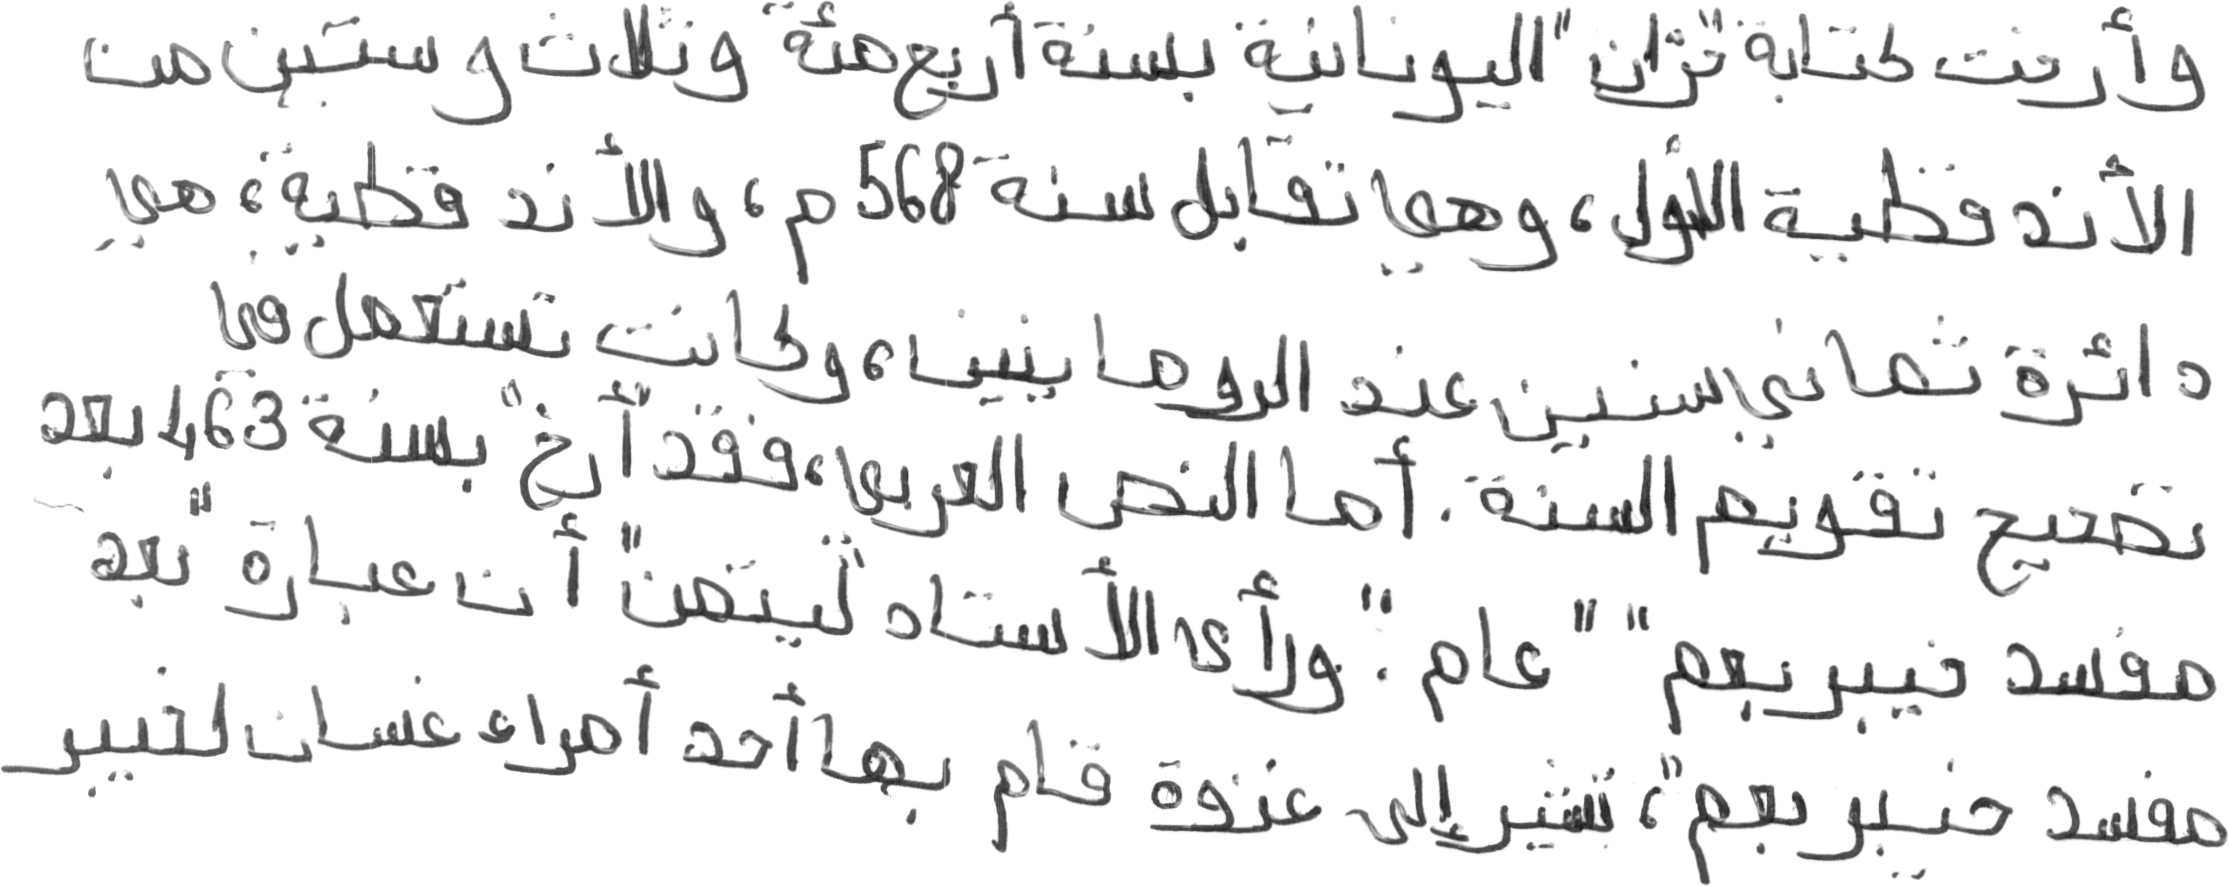 وأرخت كتابة "حران" اليونانية بسنة أربع مئة وثلاث وستين من
الأندقطية الأولى، وهي تقابل سنة 568 م، والأندقطية، هي
دائرة ثماني سنين عند الرومانيين، وكانت تستعمل في
تصحيح تقويم السنة. أما النص العربي، فقد "أرخ" بسنة 463 بعد
مفسد خيبر بعم" "عام". ورأى الأستاذ "ليتمن" أن عبارة "بعد
مفسد خيبر بعم"، تشير إلى غزوة قام بها أحد أمراء غسان لخيبر